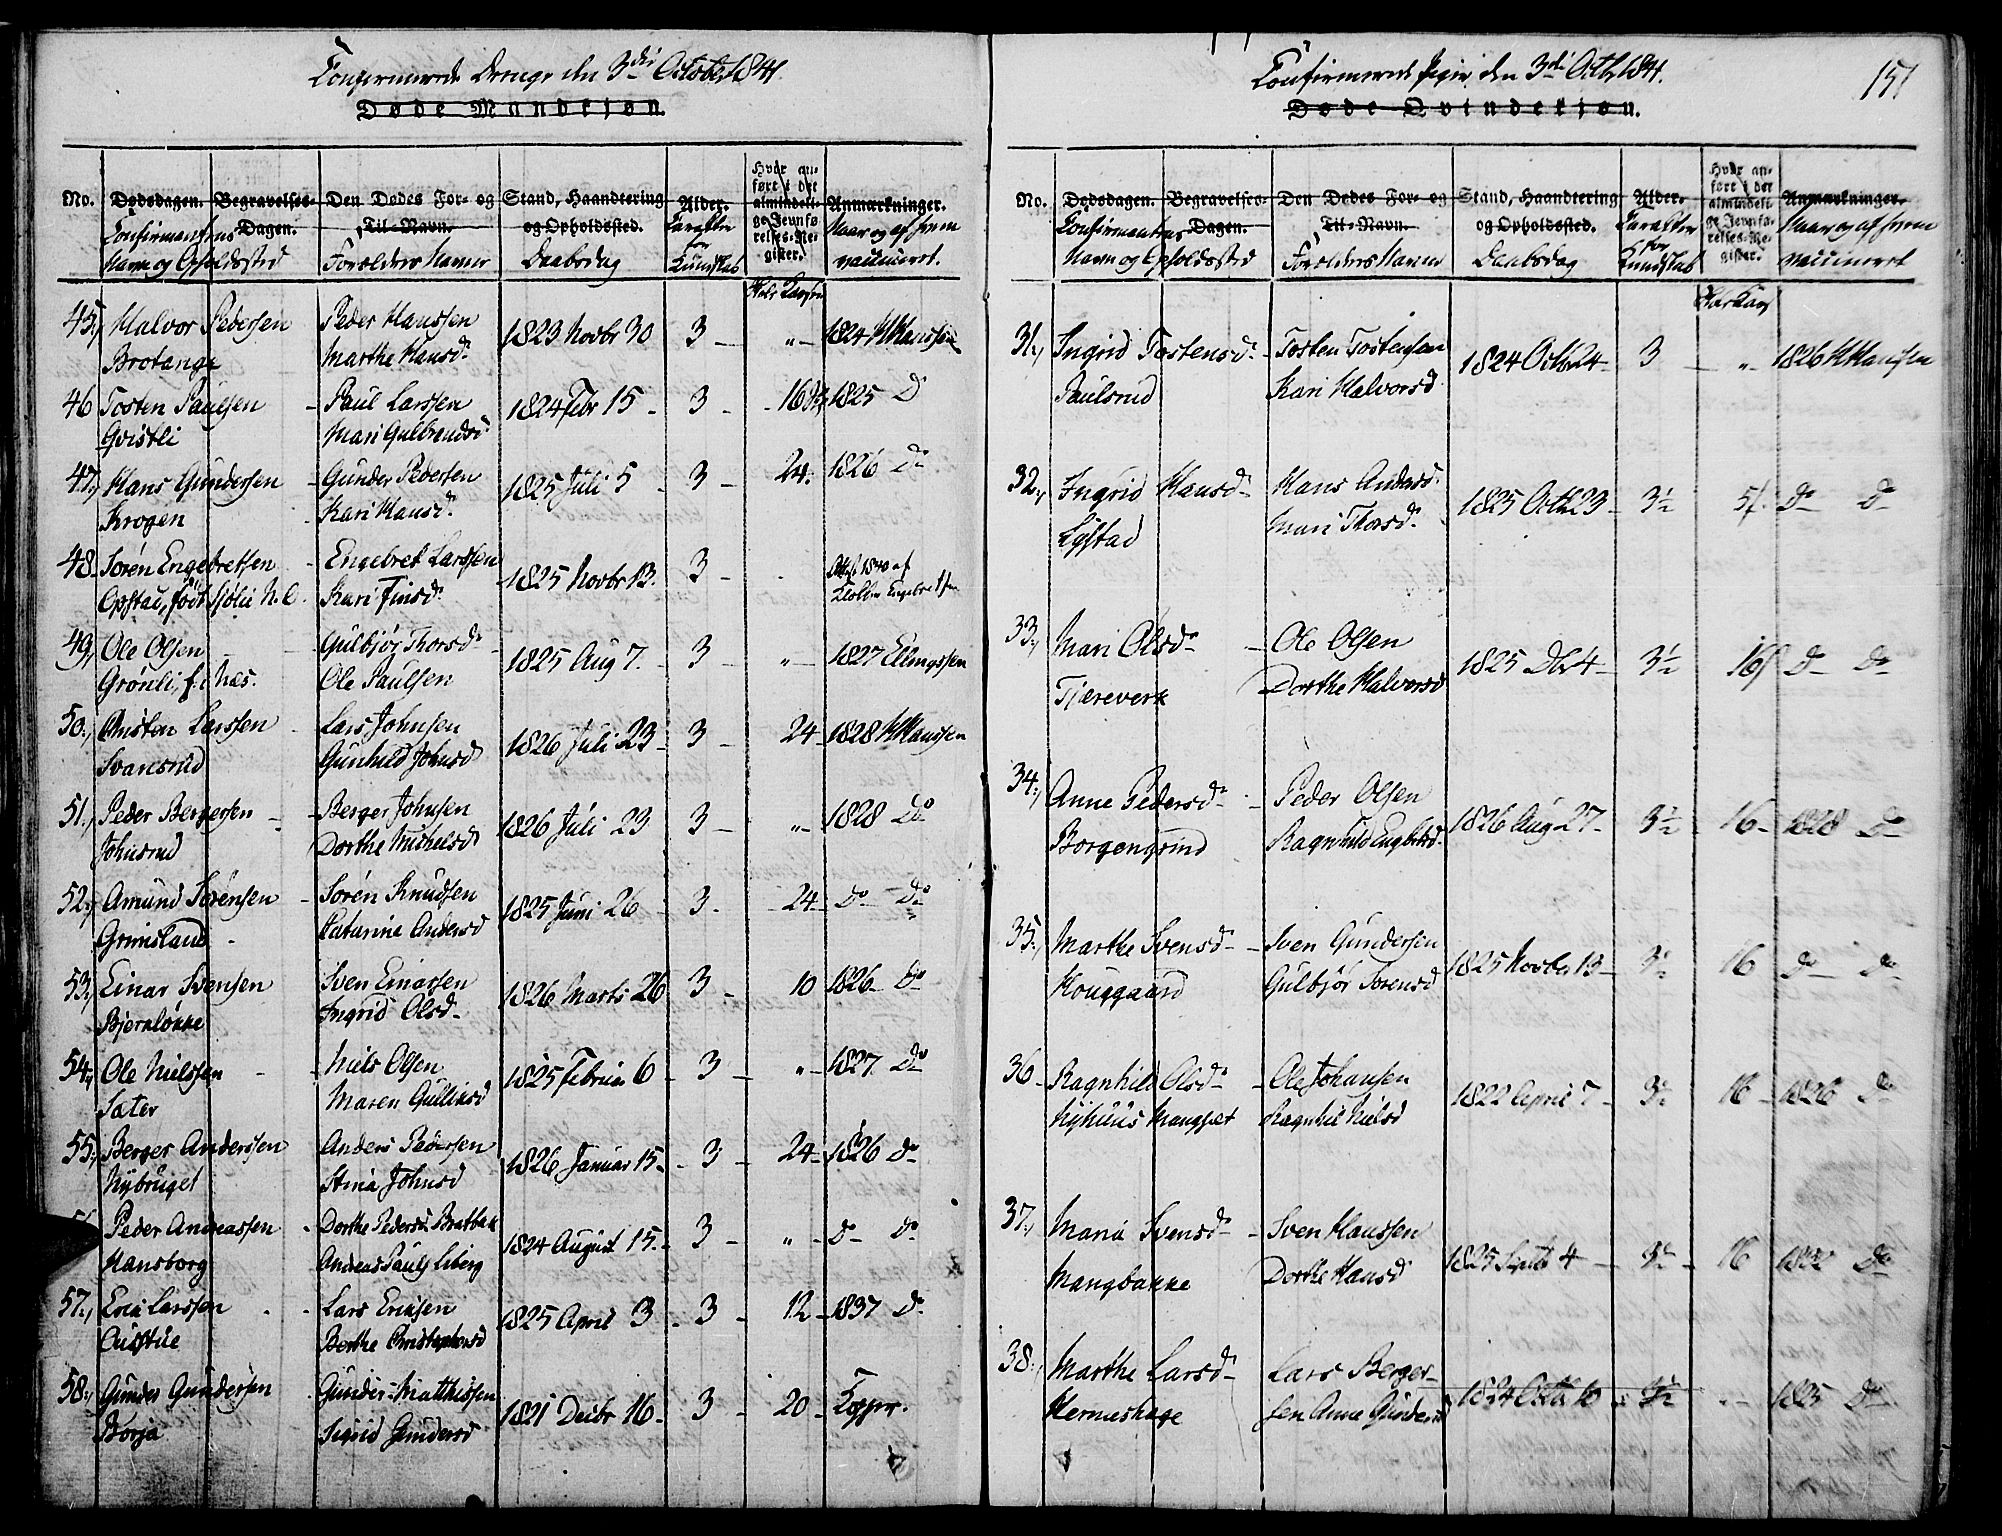 Confirmerede Drenge den 3die October 1841.
Døde Mandkjøn.
No. Dødsdagen. Begravelses-Dagen. Den Dødes For- og Til-Navn. Stand, Haandtering og Opholdssted. Alder. Hvor anført i det almindelige Jevnførelses-Register. Anmærkninger.
Confirmantens Navn og Opholdssted Forældres Navne Daabsdag Karakter for Kundskab Naar og af hvem vaccineret.
45, Halvor Pedersen Peder Hanssen 1823 Novbr 30 3 — „ — 1824 H Hanssen
Brotange Marthe Hansd.
46 Tosten Paulsen – Paul Larssen 1824 Febr 15 - 3 - 16 1825 Do
Qvistli Mari Gulbrandsd.
47, Hans Gundersen – Gunder Pedersen 1825 Juli 5 - 3 - 24. 1826 Do
Krogen Kari Hansd.
48. Sören Engebretsen – Engebret Larssen 1825 Novbr 13. 3 - 1840 af Engebretsen
Opstad, födt Kari Finsd.
49, Ole Olsen Gulbjør Thorsd. 1825 Aug 7. - 3 - „ - 1827 Ellingssen
Grönli, f. i Næs. Ole Paulsen
50, Amsten Larssen Lars Johnsen 1826 Juli 23 - 3 - 24 - 1828 H Hanssen
Svaresrud Gunhild Johnsd
51, Peder Bergersen Berger Johnsen 1826 Juli 23 3 - „ - 1828 Do
Johnsrud Dorthe Michelsd
52, Amund Sörensen – Sören Knudsen 1825 Juni 26 - 3. 24 - Do - Do
Grimsland Katarine Andersd
53, Einar Svensen Sven Einarsen 1826 Marts 26 3 - 10 1826 - Do
Bjerkeløkke Ingrid Olsd.
54, Ole Nielssen Niels Olsen 1825 Februar 6 - 3 - „ - 1827 Do
Sæter Maren Gulliksd
55, Berger Anderssen Anders Pedersen 1826 Januar 15 - 3 - 24 - 1826 Do
Nybruget Stina Johnsd
56 Peder Andreassen Dorthe Pedersd. Bratbak 1824 August 15. 3 - „ - Do Do
Hansborg Andreas Pauls Liberg
57, Eric Larssen Lars Ericsen 1825 April 3 - 3 - 12 - 1837 Do
Austue Berthe Christophersd
58, Gunder Gundersen Gunder Matthissen 1821 Decbr 16 - 3 - 20 - Kopper.
Borja Sigrid Gundersd
Confirmerede Piger den 3die Octbr 1841. 151
Døde Qvindekjøn.
No. Dødsdagen. Begravelses-Dagen. Den Dødes For- og Til-Navn. Stand, Haandtering og Opholdssted. Alder. Hvor anført i det almindelige Jevnførelses-Register. Anmærkninger.
Confirmantens Navn og Opholdssted Forældres Navne Daabsdag Karakter for Kundskab Naar og af hvem vaccineret
31, Ingrid Tostensd. – Tosten Tostensen 1824 Octbr 24 - 3 - „ - 1826 H Hanssen
Paulsrud Kari Halvorsd
32, Ingrid Hansd. – Hans Andersd. 1825 Octb 23 - 3½ 5 Do Do
Lystad Mari Thorsd.
33, Mari Olsd. – Ole Olsen 1825 Dbr 4 - 3½ 16 Do Do
Tjæreverk Dorthe Halvorsd
34, Anne Pedersd. – Peder Olsen 1826 Aug 27 - 3½ 16 - 1828 Do
Borgengrind Ragnhild Engebrtsd.
35, Marthe Svensd. – Sven Gundersen 1825 Novbr 13 - 3½ 16 Do Do
Houggaard Gulbjör Sorensd
36 - Ragnhild Olsd. – Ole Johansen 1822 April 7 - 3½ 16 - 1826 Do
Nyhuus Mangset Ragnhil Nielsd
37, Maria Svensd. – Sven Hanssen 1825 Septb 4 - 3½ - 16 Do
Mangbakke Dorthe Hansd
38, Marthe Larsd. Lars Berger- 1824 Octb 10 3½ „ - 1825 Do
Herneshage sen Anne Gundersd